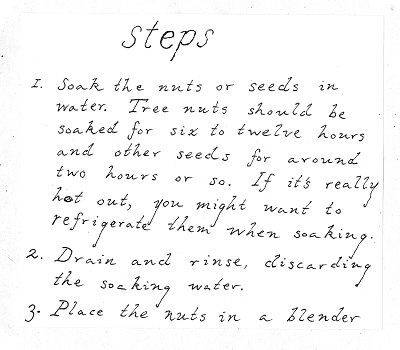 steps
1. Soak the nuts or seeds in
water. Tree nuts should be
soaked for six to twelve hours
and other seeds for around
two hours or so. If it's really
hot out, you might want to
refrigerate them when soaking.
2. Drain and rinse, discarding
the soaking water.
3. Place the nuts in a blender